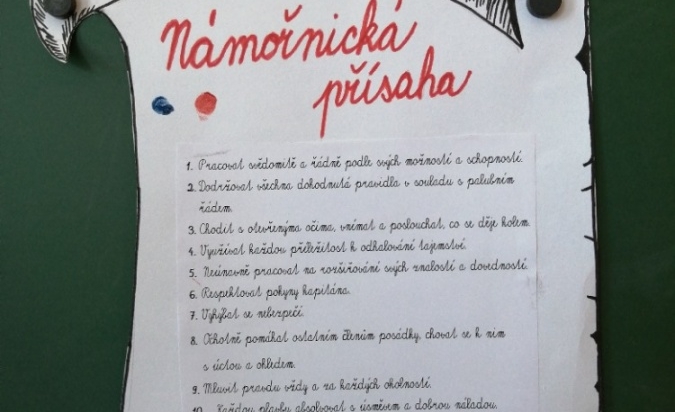 Námořnická
přísaha
1. Pracovat svědomitě a řádně podle svých možností a schopností.
2. Dodržovat všechna dohodnutá pravidla v souladu s palubním
řádem.
3. Chodit s otevřenýma očima, vnímat a poslouchat, co se děje kolem.
4. Využívat každou příležitost k odhalování tajemství.
5. Neúnavně pracovat na rozšiřování svých znalostí a dovedností.
6. Respektovat pokyny kapitána.
7. Vyhýbat se nebezpečí.
8. Ochotně pomáhat ostatním členům posádky, chovat se k nim
s úctou a ohledem.
9. Mluvit pravdu vždy a za každých okolností.
10. Každou plavbu absolvovat s úsměvem a dobrou náladou.